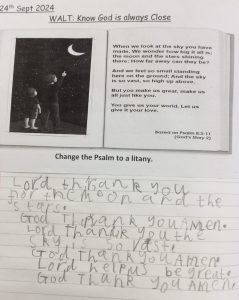 24th Sept 2024
WALT: Know God is always Close
When we look at the sky you have
made. We wonder how big it all is,
the moon and the stars shining
there; How far away can they be?
And we feel so small standing
here on the ground; And the sky
is so vast, so high up above.
But you make us great, make us
all just like you.
You give us your world, Let us
give it your love.
Based on Psalm 8:3-11
(God's Story 2)
Change the Psalm to a litany.
Lord thank you
for the moon and the
stars.
God Thank you Amen.
Lord Thank you the
sky is so vast.
God Thank you Amen.
Lord help us be great.
God Thank you Amen.